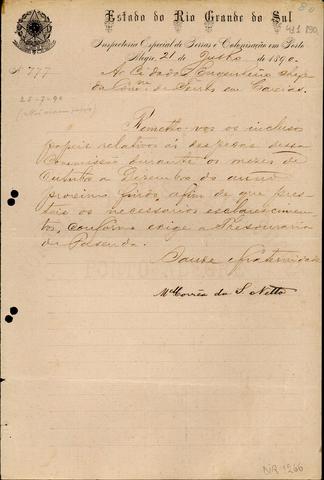 Estado do Rio Grande do Sul
Inspectoria Especial de Terras e Colonisação em Porto
Alegre, 21 de Julho de 1890.
Nº 777
Ao Cidadão Engenheiro Chefe
da Comm de Terras em Caxias.
25-7-90
Remetto-vos os inclusos
papeis relativos ás despezas dessa
Commissão durante os mezes de
Outubro a Dezembro do anno
proximo findo, afim de que pres-
teis os necessarios esclarecimen-
tos, conforme exige a Thesouraria
de Fazenda.
Saude e fraternidade
Mel Corrêa da S. Netto
NR 1266